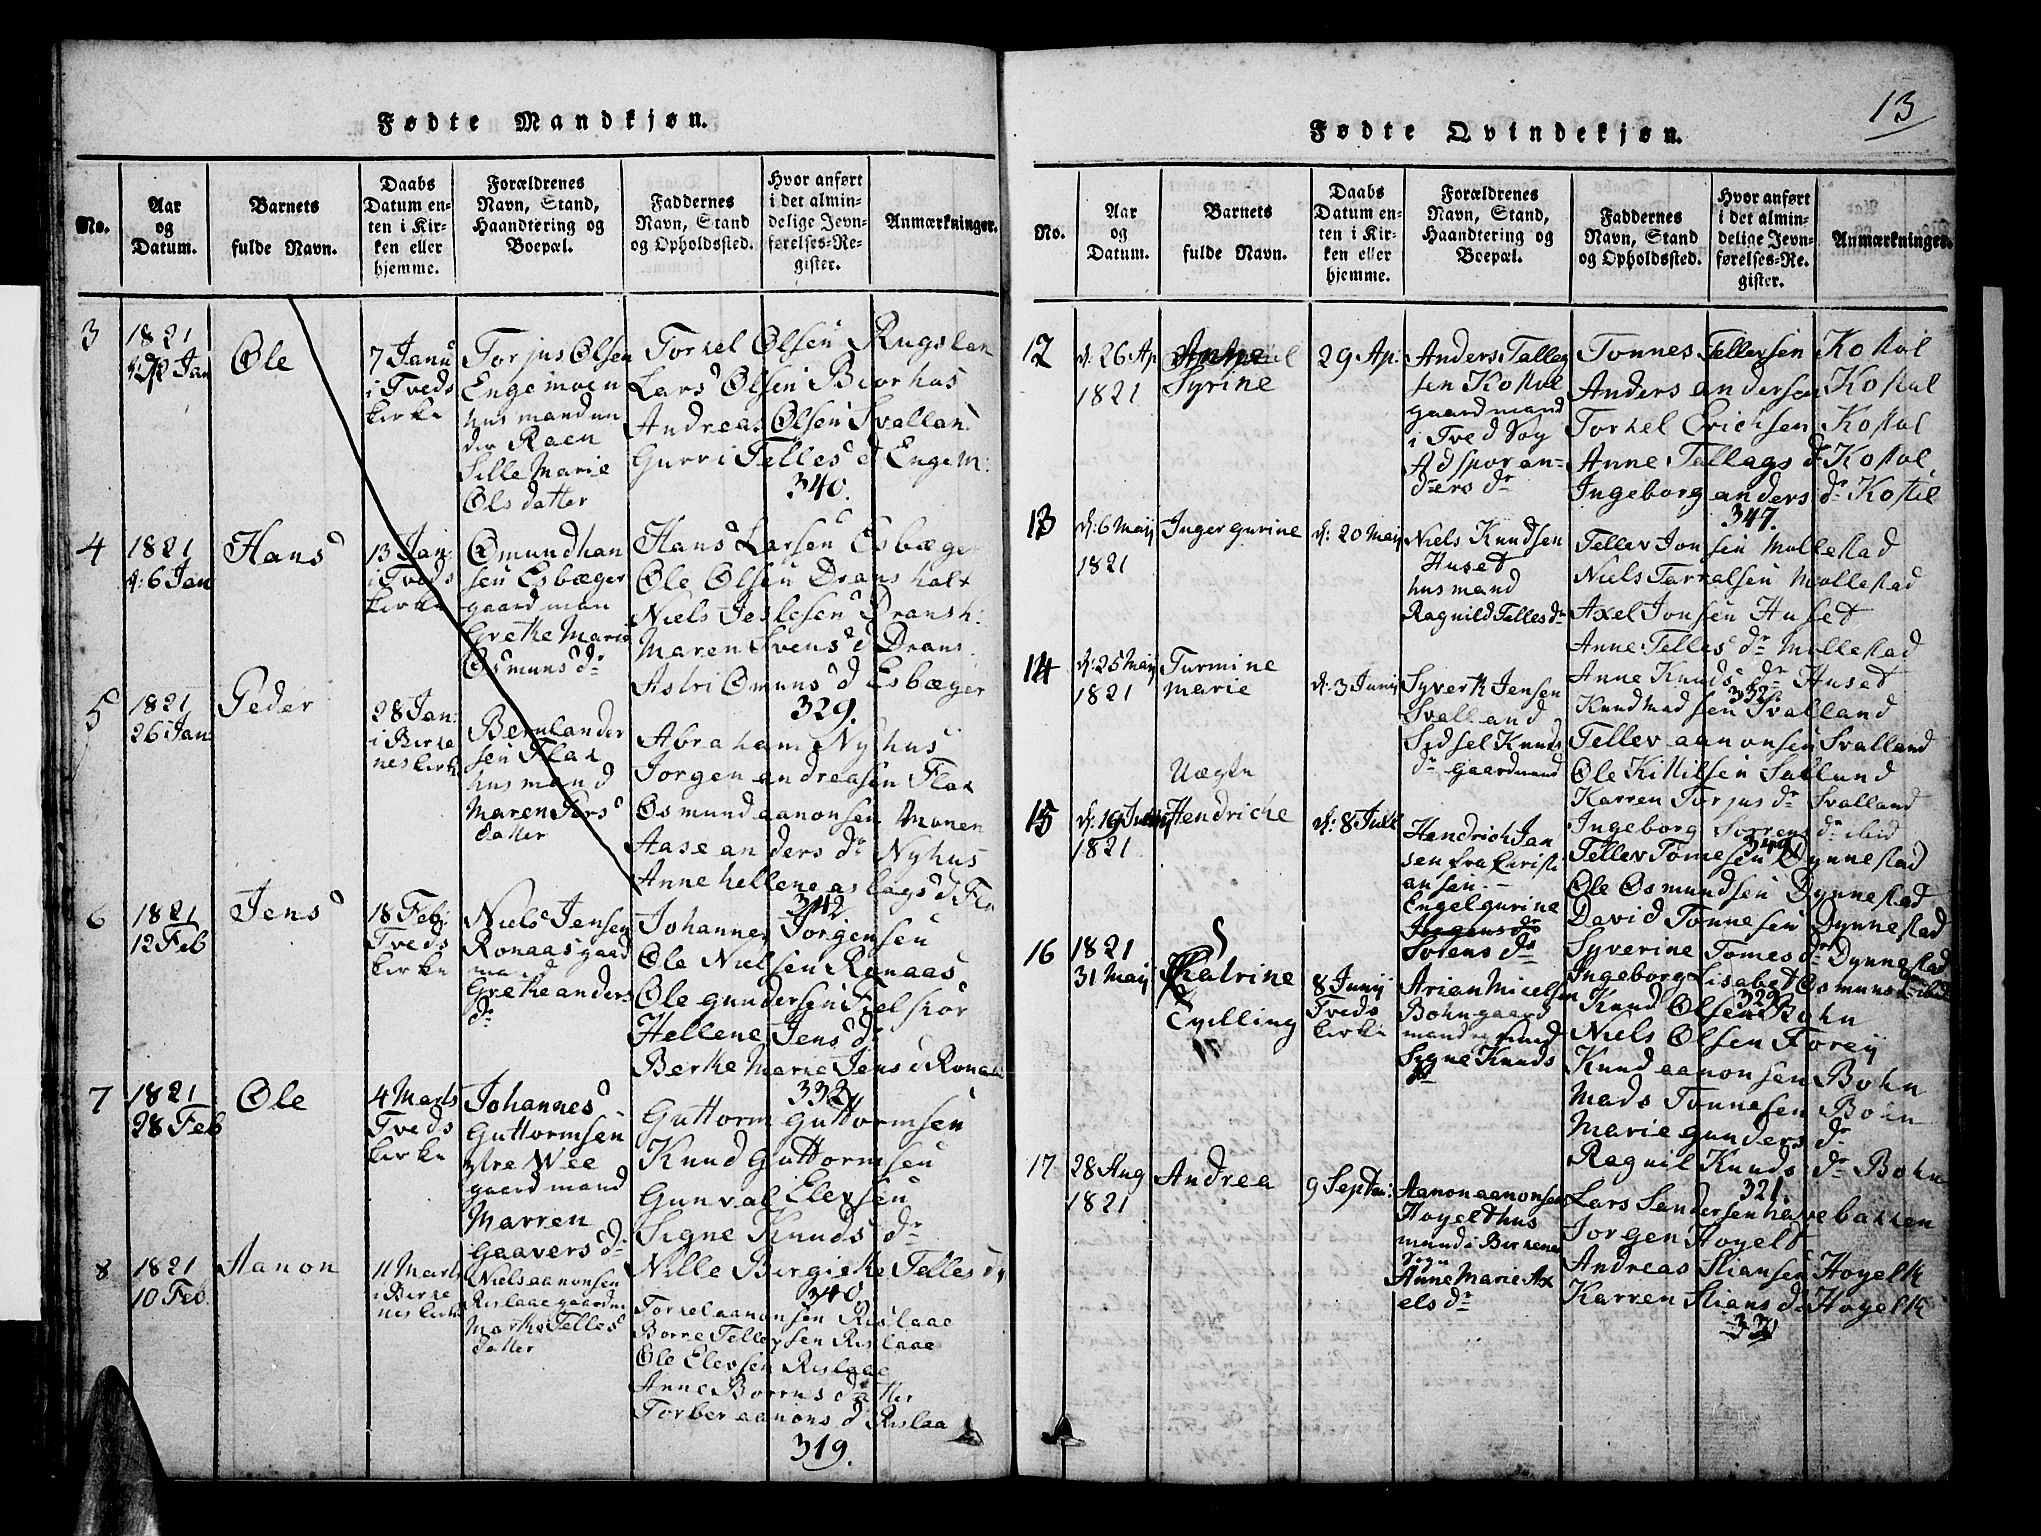 Fødte Mandkjøn.
No.
Aar
og
Datum.
Barnets
fulde Navn.
Daabs
Datum en-
ten i Kir-
ken eller
hjemme.
Forældrenes
Navn, Stand,
Haandtering og
Boepæl.
Faddernes
Navn, Stand
og Opholdssted.
Hvor anført
i det almin-
delige Jevn-
førelses-Re-
gister.
Anmærkninger.
3
1821
Jan
Ole
7 Janu
i Tveds
kirke
Torjus Olsen
Engemoen
husmand un
der Raen
Sille Marie
Ols datter
Torkel Olsen Rugslan
Lars Olsen Biorhus
Andreas Olsen Svalland
Gurri Telles d Engem:
340.
4
1821
d: 6 Jan
Hans
13 Jan:
i Tveds
kirke
Omund han
sen Esbæger
gaardman
Grethe Marie
Osmuns dr
Hans Larsen Esbæger
Ole Olsen Dransholt
Niels Jeslesen Dransh:
Maren Svens d Drans
Astri Omuns d Esbæger
329.
5
1821
26 Jan
Peder
28 Jan:
i Birke
nes kirke
Bernt ander
sen Flax
husmand
Maren Pers
datter
Abraham Nyhus
Jorgen andreasen Flax
Osmund aanonsen Monen
Aase anders dr Nyhus
Anne hellene aslags d Fla
342
6
1821
12 Feb
Jens
18 Feb:
Tveds
kirke
Niels Jensen
Ronaas gaard
mand
Grethe anders
dr
Johannes Jorgensen
Ole Nielsen Ronaas
Ole gundersen Fielskor
Hellene Jens dr
Berthe Marie Jens d Ronaas
332
7
1821
28 Feb
Ole
4 Marts
Tveds
kirke
Johannes
Guttormsen
ytre Wee
gaardmand
Marren
Gaavers d:
Guttorm Guttormsen
Knud Guttormsen
Gunval Elevsen
Signe Knuds dr
Nille Birgiethe Telles dr
340
8
1821
10 Feb.
Aanon
11 Marts
i Birke
nes kirke
Niels aanonsen
Rislaae gaardm
Marthe Telles
datter
Torkel aanonsen Rislaae
Borre Tellevsen Rislaae
Ole Elevsen Rislaae
Anne Borrus datter
Torber aanons d Rislaa
319.
13
Fødte Qvindekjøn.
No.
Aar
og
Datum.
Barnets
fulde Navn.
Daabs
Datum en-
ten i Kir-
ken eller
hjemme.
Forældrenes
Navn, Stand,
Haandtering og
Boepæl.
Faddernes
Navn, Stand
og Opholdssted.
Hvor anført
i det almin-
delige Jevn-
førelses-Re-
gister.
Anmærkninger.
12
d: 26 Ap
1821
Syrine
29 Ap:
Anders Talleg
sen Kostøl
gaardmand
i Tved Sog
Adspor an=
ders dr
Tonnes Tellefsen Kostøl
Anders andersen Kostøl
Torkel Erichsen Kostøl
Anne Tallags dr Kostøl
Ingeborg anders dr Kostøl
347.
13
d: 6 Maij
1821
Ingergurine
d: 20 Maij
Niels Knudsen
Huset
husmand
Ragnild Telles dr
Tellev Jonsen Mollestad
Niels Tarralsen Mollestad
Axel Jonsen Huset
Anne Telles dr Mollestad
Anne Knuds dr Huset
332
14
d: 25 Maij
1821
Turmine
marie
d: 3 Junij
Syvert Jensen
Svalland
Sidsel Knuds
dr Gaardmand
Knud Madsen Svalland
Tellev aanonsen Svalland
Ole Kittilsen Salland
Karren Torjus dr Svalland
Ingeborg Sorrens dr ibid
15
1821
Uægte
Hendriche
d: 8 Jule
Hendrich Jan
sen fra Christi
ansen.
Engelgurine
Sorens dr
Tellev Tomesen Dynnestad
Ole Osmundsen Dynnestad
David Tonnesen Dynnestad
Syverine Tomes dr Dynnestad
Ingeborg Lisabet Osmuns dr ibid
329
16
1821
31 Maij
Katrine
Tvilling
8 Junij
Tveds
kirke
Arian Micelsen
Bohn gaard
mand
Sygne Knuds
dr
Knud Olsen Bohn
Niels Olsen Forey
Knud aanonsen Bohn
Mads Tonnesen Bohn
Marie gunders dr
Ragnil Knuds dr Bohn
321.
17
28 Aug
1821
Andrea
9 Septem:
Aanon aanonsen
Hoyelt hus
mand i Birkenes
Sogn
Anne Marie Ax
els dr
Lars Sandersen havebakken
Jorgen Hoyelt
Andreas Stiansen Hoyelt
Karren Stians dr Hoyelt